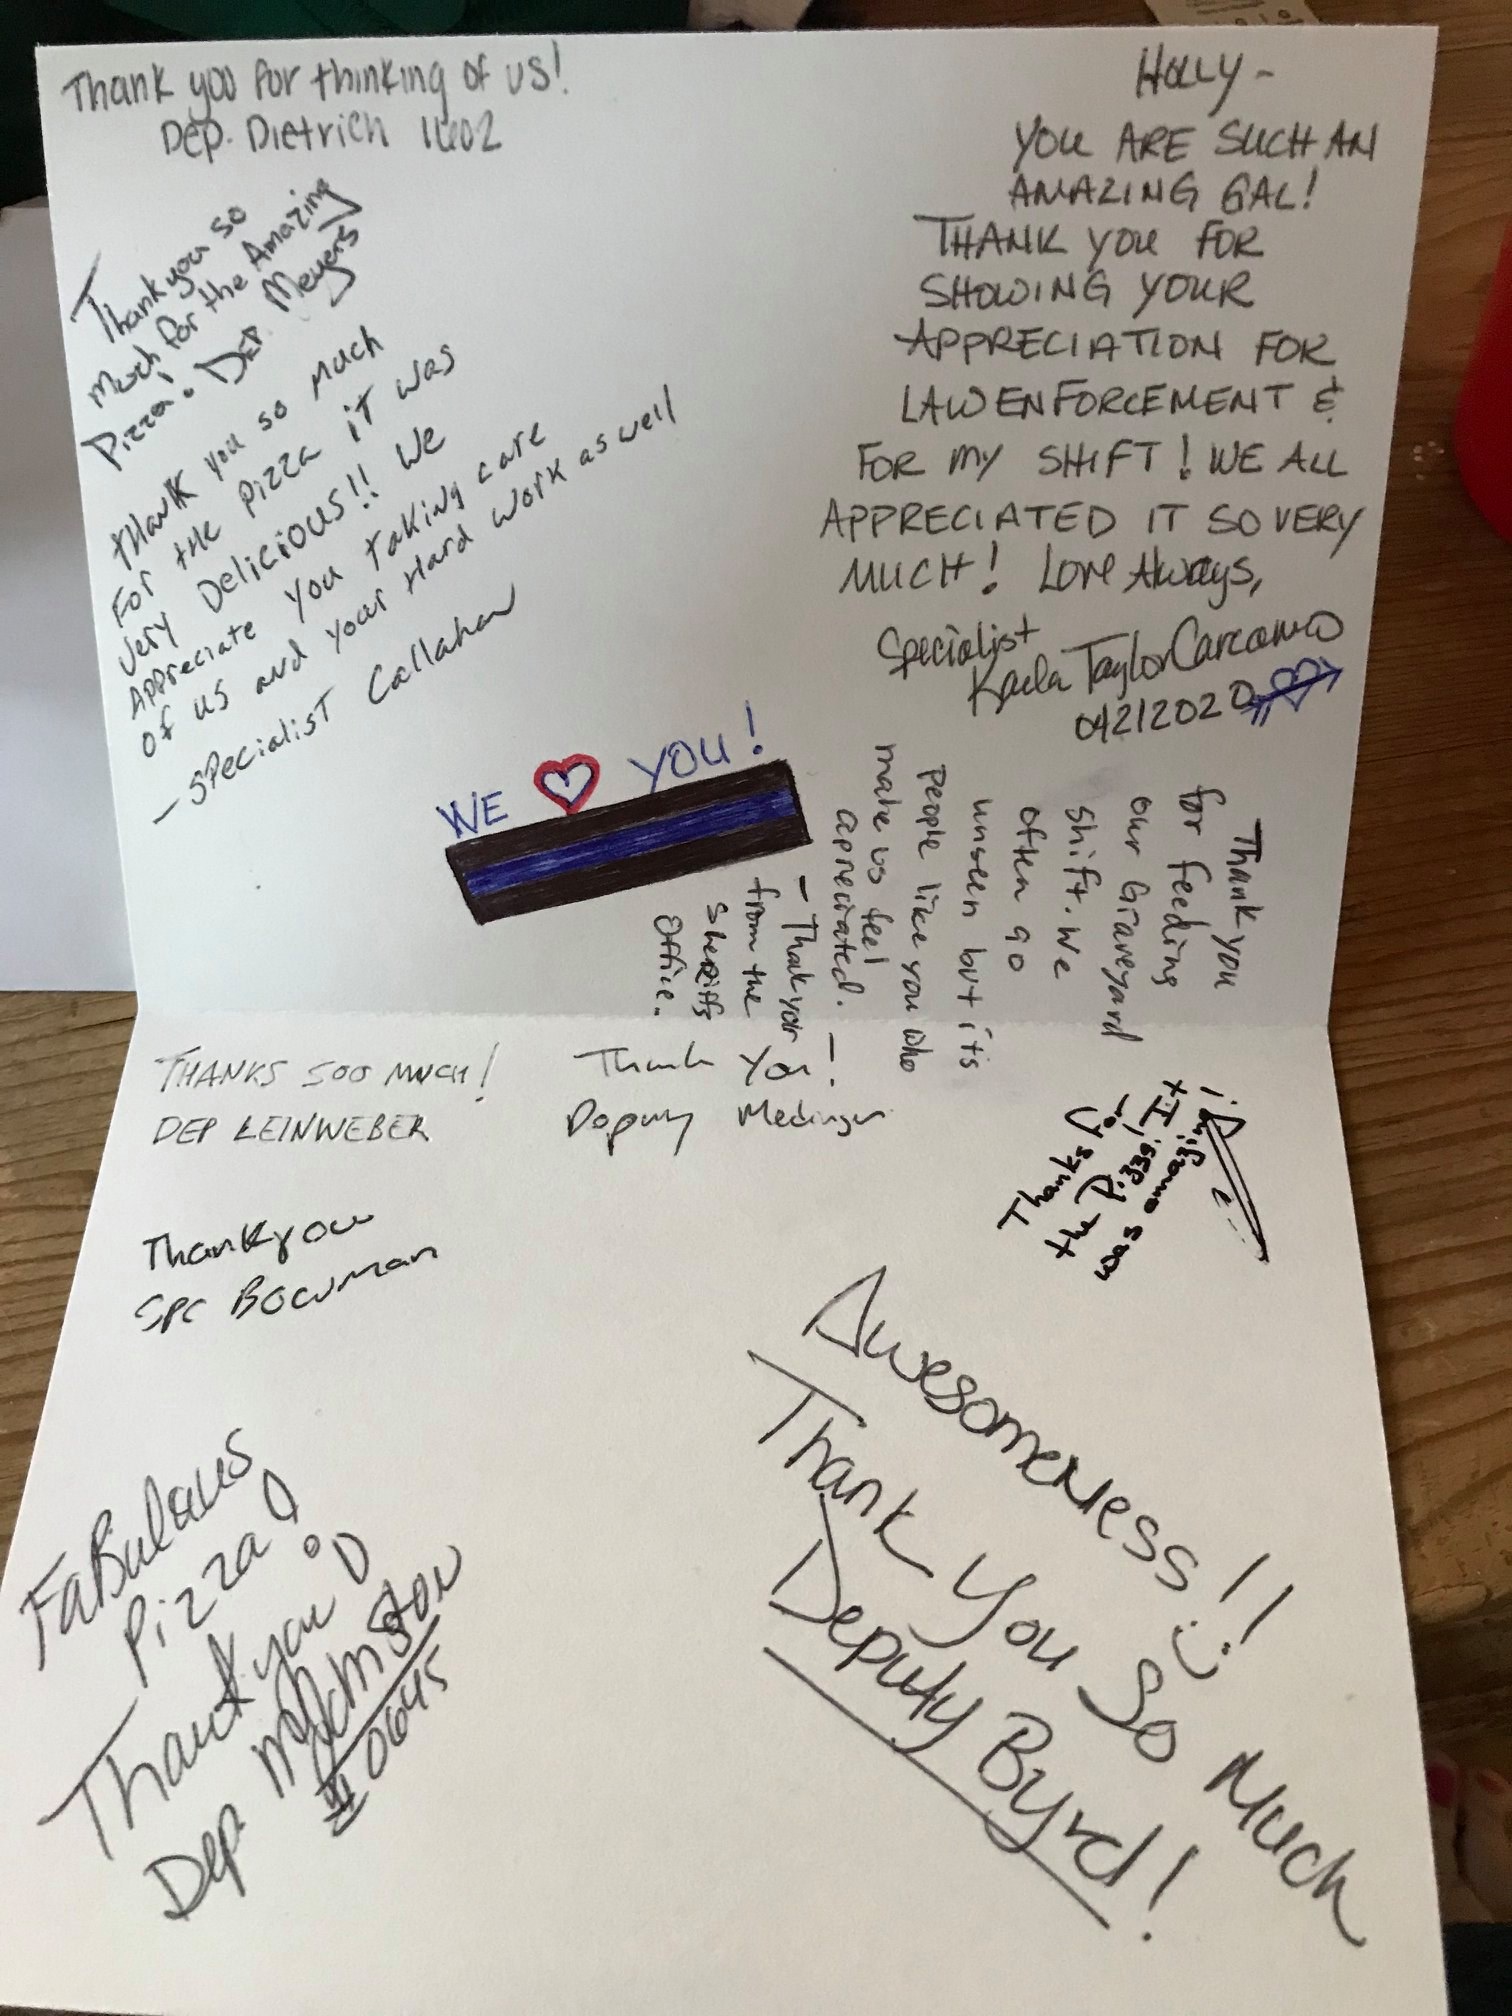 Thank you for thinking of us!
Dep. Dietrich 1602
Thank you so
much for the Amazing
Pizza! Dep. Meyers
Thank you so much
For the pizza it was
very Delicious!! We
Appreciate you taking care
of us and your Hard work as well
- Specialist Callahan
HOLLY -
YOU ARE SUCH AN
AMAZING GAL!
THANK YOU FOR
SHOWING YOUR
APPRECIATION FOR
LAW ENFORCEMENT &
FOR MY SHIFT! WE ALL
APPRECIATED IT SO VERY
MUCH! Love Always,
Specialist
Kaela Taylor
04212020
WE YOU!
Thank you
for feeding
our Graveyard
shift. We
often go
unseen but its
people like you who
make us feel
apreciated.
- Thank you -
from the
Sheriffs
Office.
THANKS SOO MUCH!
DEP LEINWEBER
Thank you!
Deputy Medinger
Thanks For
the Pizza! It
was amazing!
Thank you
Spc Bowman
Awesomeness!!
Thank You So Much
Deputy Byrd!
FaBulous
Pizza!
Thank you
Dep
0645